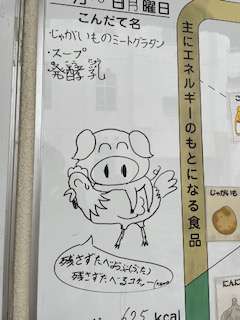 月 日 月曜日
こんだて名
じゃがいものミートグラタン
・スープ
発酵乳
残さずたべようぶぅ(ぶた)
残さずたべるコケー
625 kcal
主にエネルギーのもとになる食品
じゃがいも
にんに